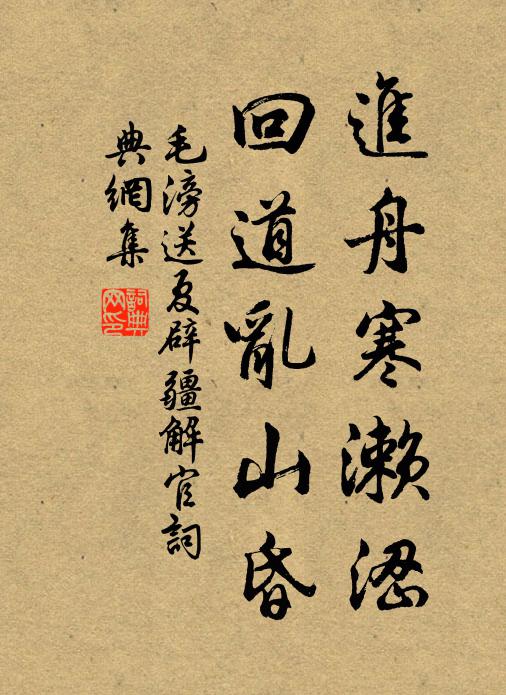 進舟寒濑涩
回道亂山昏
毛滂送夏辟疆解官詞
典網集
詞典
网印